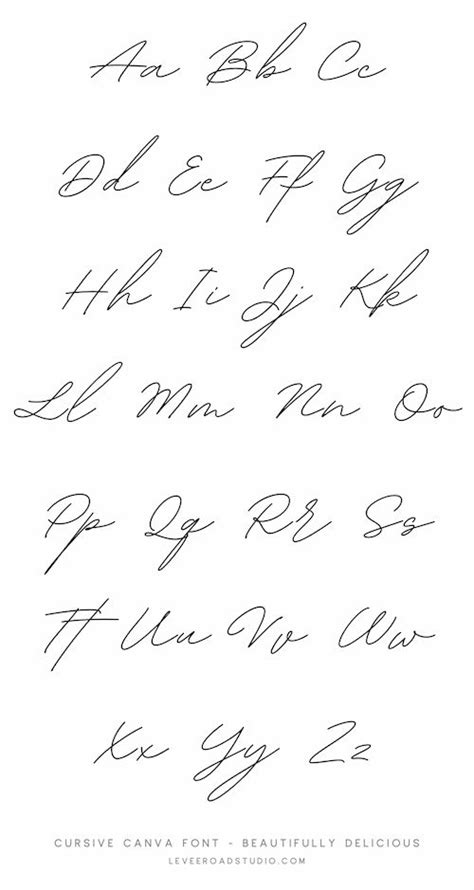 Aa Bb Cc
Dd Ee Ff Gg
Hh Ii Jj Kk
Ll Mm Nn Oo
Pp Qq Rr Ss
Tt Uu Vv Ww
Xx Yy Zz
CURSIVE CANVA FONT - BEAUTIFULLY DELICIOUS
LEVEEROADSTUDIO.COM